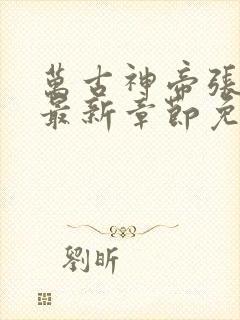 萬古神帝張
最新章節免
劉昕